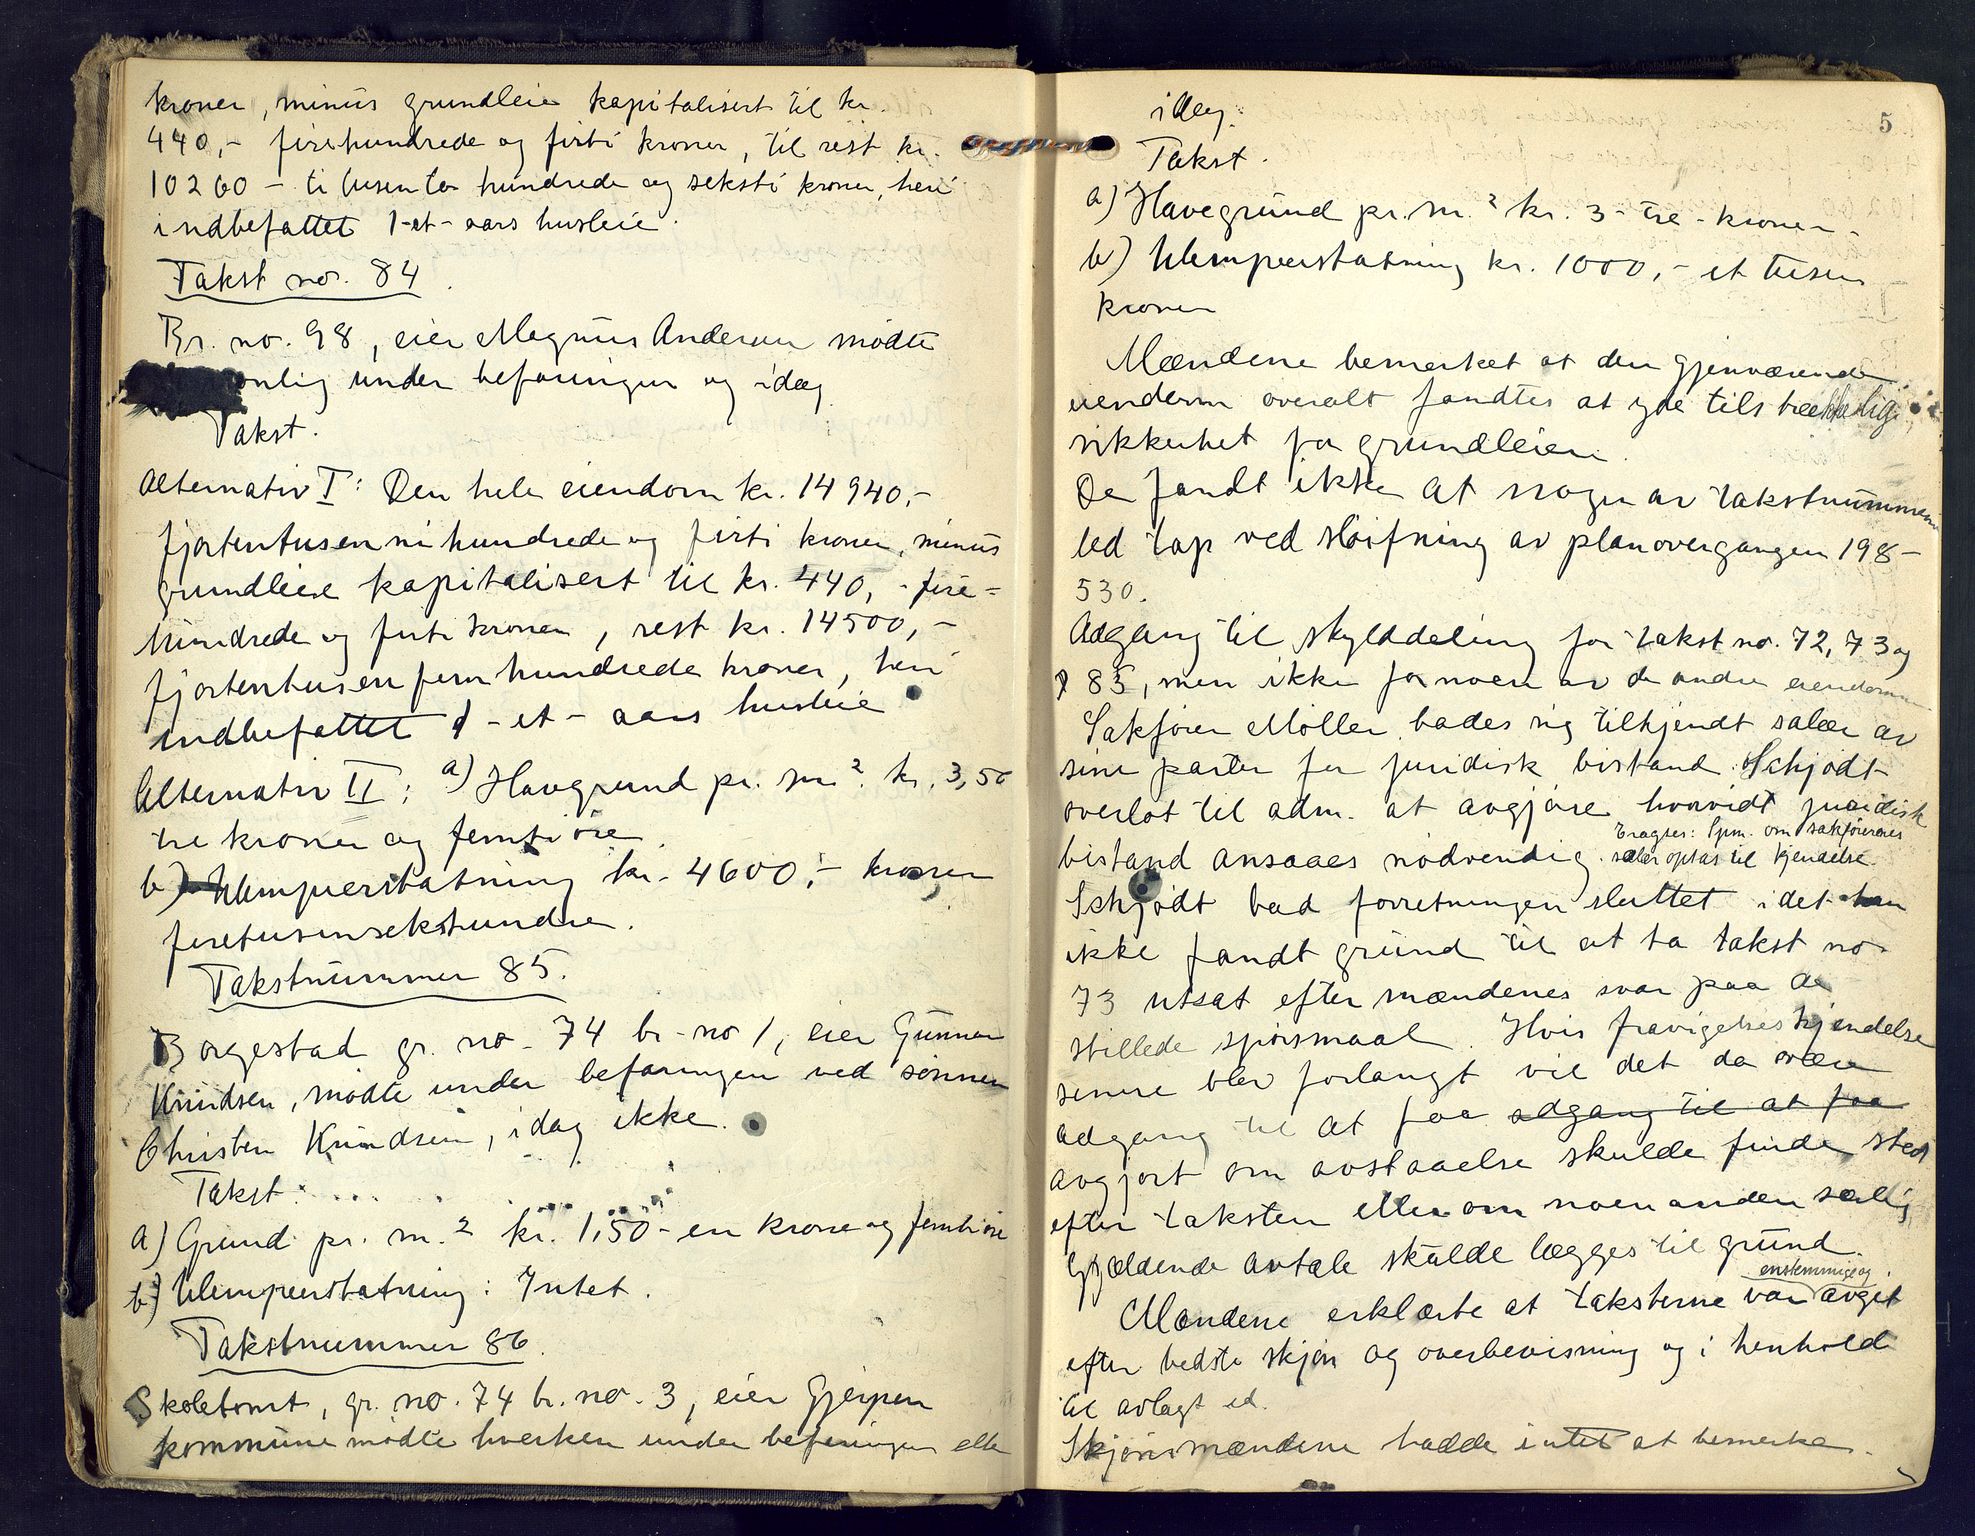 kroner, minus grundleie kapitalisert til kr.
440,- firehundrede og firti kroner, til rest kr.
10260 - ti tusen to hundrede og seksti kroner, heri
indbefattet 1-et-aars husleie.
Takst no. 84.
Br. no. 98, eier Magnus Andersen mødte
onlig under befaringen og idag.
Takst.
Alternativ I: Den hele eiendom kr. 14940,-
fjortentusen ni hundrede og firti kroner, minus
grundleie kapitalisert til kr. 440,- fire-
hundrede og firti kroner, rest kr. 14500,-
fjortentusen fem hundrede kroner, heri
indbefattet 1-et-aars husleie
Alternativ II: a) Havegrund pr. m² kr. 3,50
tre kroner og femti øre.
b) Ulempeerstatning kr. 4600,- kroner
firetusensekshundre.
Takstnummer 85.
Borgestad gr. no. 74 br. no 1, eier Gunnar
Knudsen, mødte under befaringen ved sønnen
Christen Knudsen, idag ikke.
Takst:
a) Grund pr. m.² kr. 1,50 - en krone og femti øre
b) Ulempeerstatning: Intet.
Takstnummer 86.
Skoletomt, gr. no. 74 br. no. 3, eier Gjerpen
kommune mødte hverken under befaringen eller
5
idag.
Takst.
a) Havegrund pr. m.² kr. 3 - tre - kroner.
b) Ulempeerstatning kr. 1000,- et tusen
kroner
Mændene bemerket at den gjenværende
eiendom overalt fandtes at yde tilstrækkelig
sikkerhet for grundleien.
De fandt ikke at nogen av takstnummerne
led tap ved sløifning av planovergangen 198-
530.
Adgang til skylddeling for takst no. 72, 73 og
85, men ikke for noen av de andre eiendomme
Sakfører Møller bades sig tilkjendt salær av
sine parter for juridisk bistand. Schjødt
overlot til adm. at avgjøre hvorvidt juridisk
bistand ansaaes nødvendig. Eragses: Spm. om sakførernes
salær optas til kjendelse
Schjødt bad forretningen sluttet idet han
ikke fandt grund til at ta takst no
73 utsat efter mændenes svar paa de
stillede spørsmaal. Hvis fravigelseskjendelse
senere blev forlangt vil det da være
adgang til at faa adgang til at faa
avgjort om avstaaelse skulde finde sted
efter taksten eller om noen anden særlig
gjældende avtale skulde lægges til grund.
Mændene erklærte at taksterne var enstemmige og avgit
efter bedste skjøn og overbevisning og i henhold
til avlagt ed.
Skjønsmændene hadde intet at bemerke.